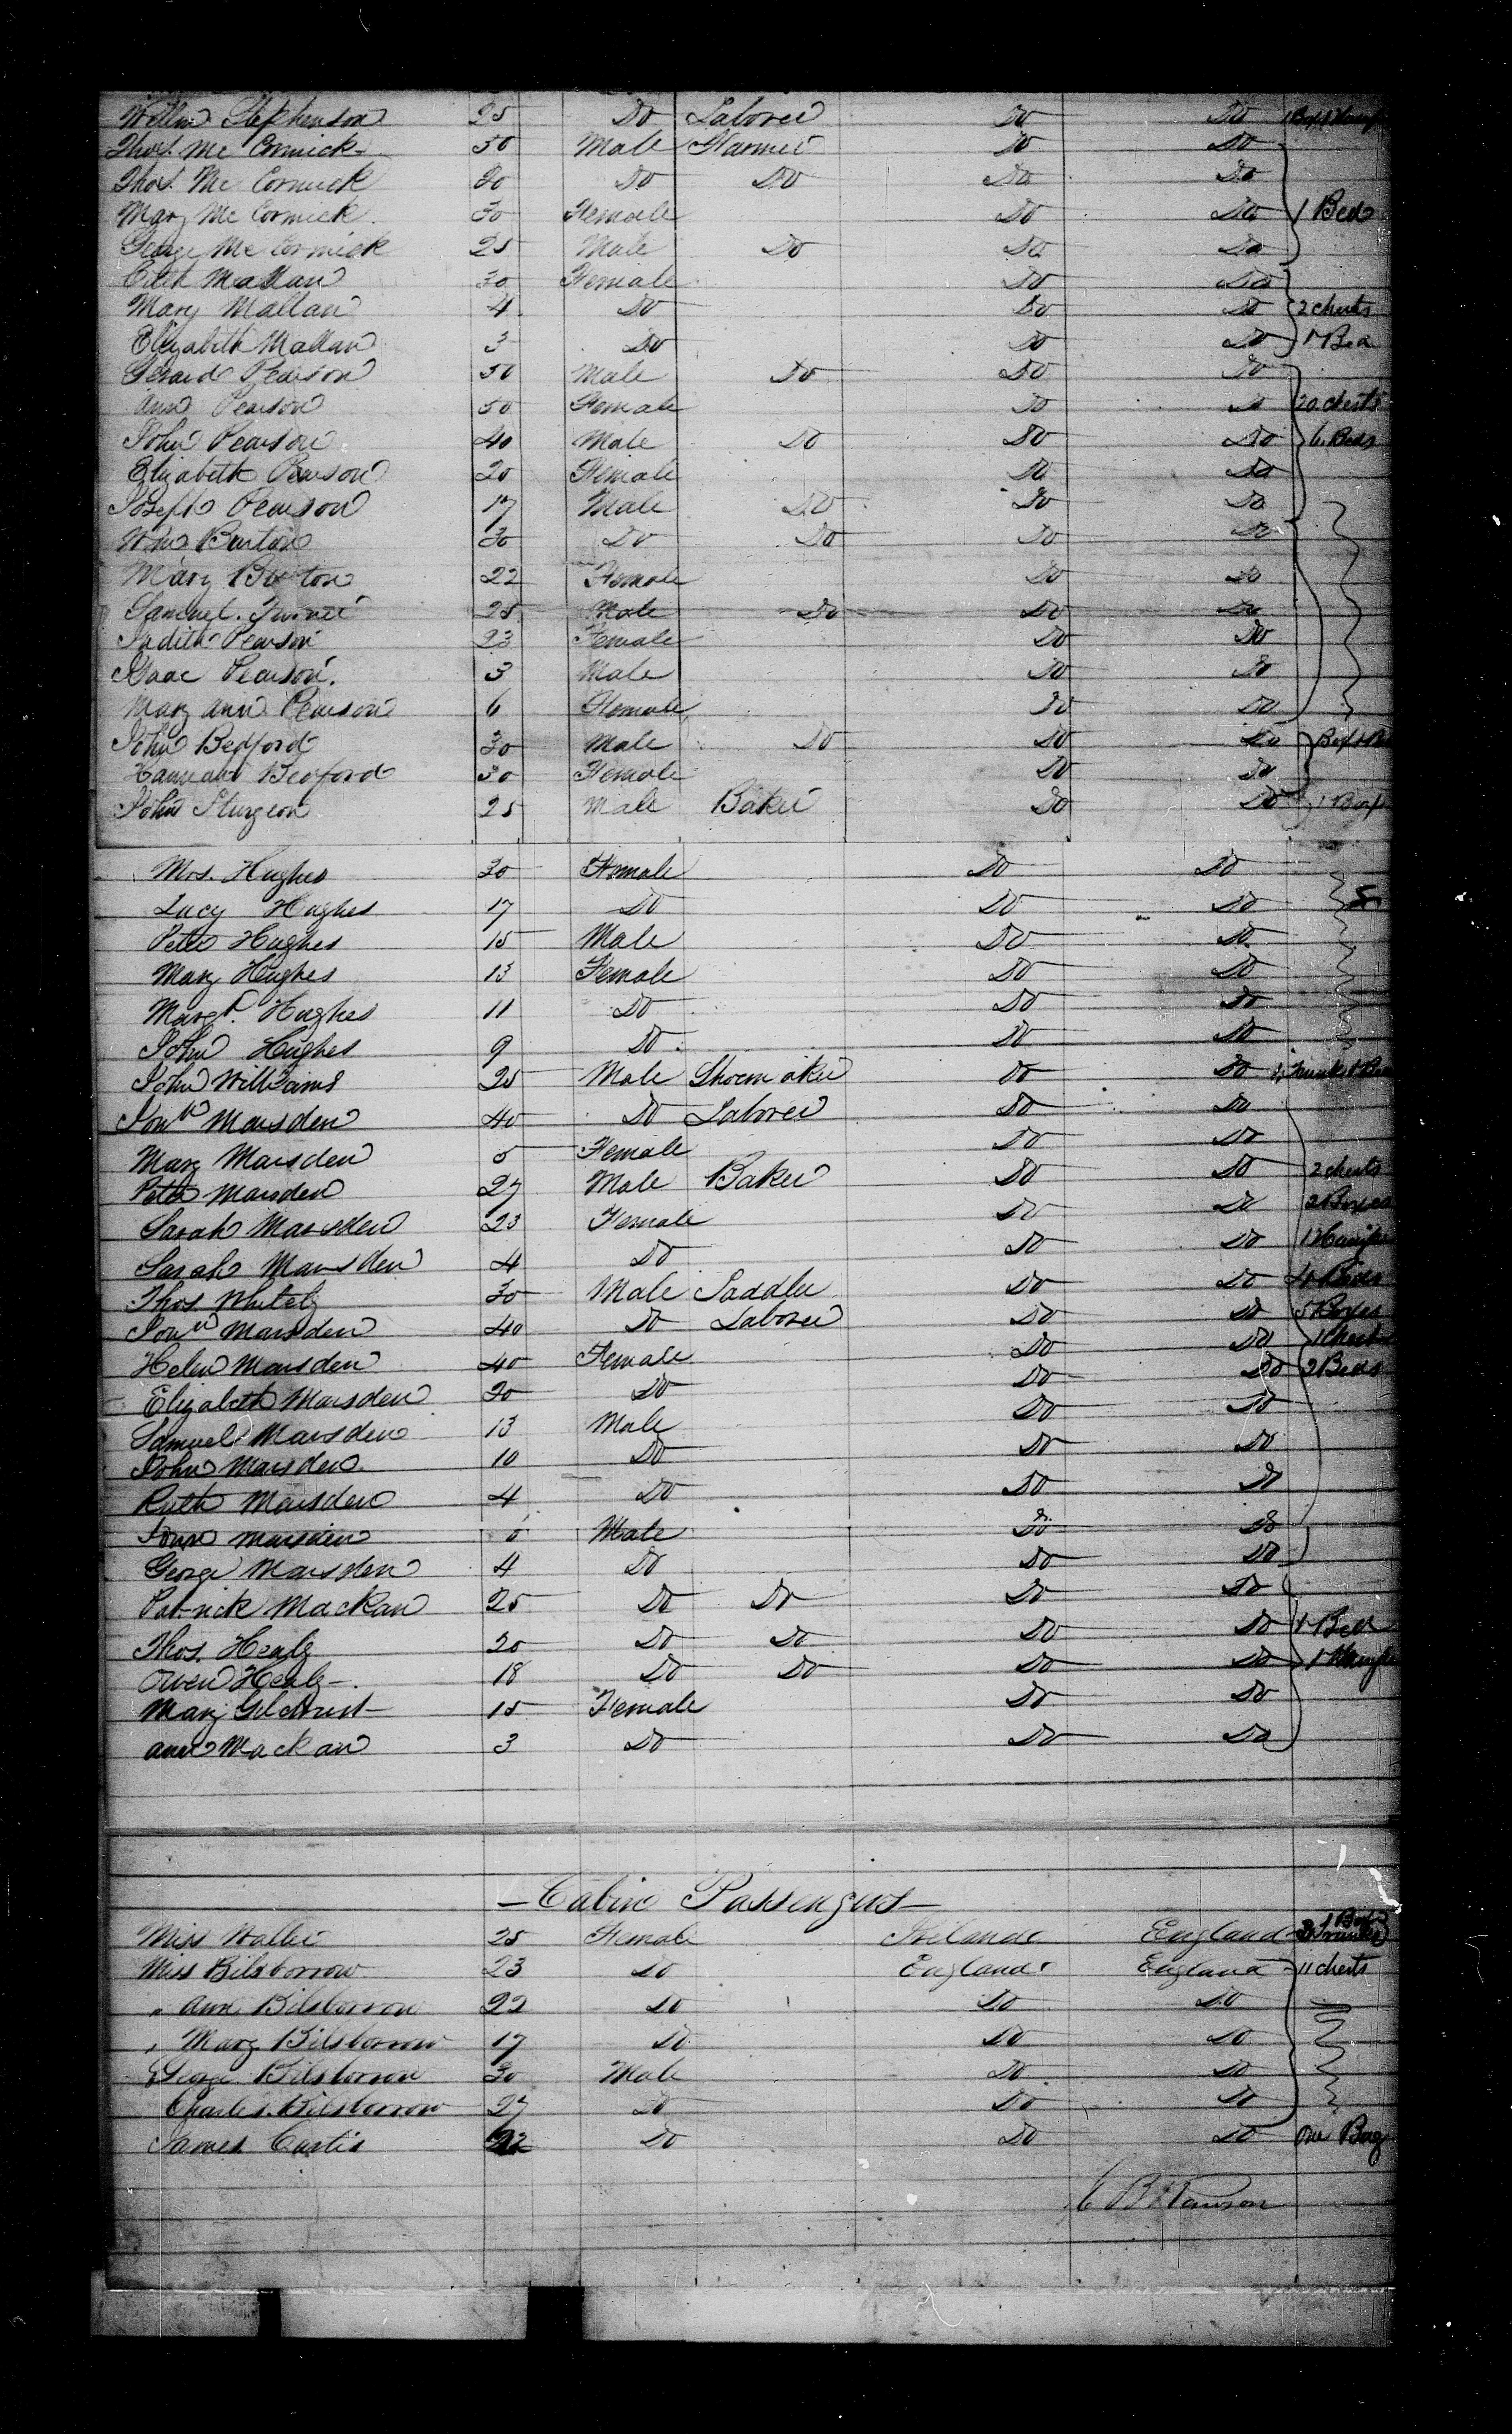 Willm Stephenson 25 Do Laborer Do Do
Thos. Mc Cormick 50 Male Farmer Do Do
Thos. Mc Cormick 20 Do Do Do Do
Mary Mc Cormick 30 Female Do Do 1 Bed
George Mc Cormick 25 Male Do Do Do
Mallan 30 Female Do Do
Mary Mallan 4 Do Do Do 2 chests
Elizabeth Mallan 3 Do Do Do 1 Bed
Gerard Pearson 50 Male Do Do Do
Ann Pearson 50 Female Do Do 20 chests
John Pearson 40 Male Do Do Do 6 Beds
Elizabeth Pearson 20 Female Do Do
Joseph Pearson 17 Male Do Do Do
Wm Burton 30 Do Do Do Do
Mary Burton 22 Female Do Do
Samuel Turner 25 Male Do Do Do
Judith Pearson 23 Female Do Do
Isaac Pearson 3 Male Do Do
Mary Ann Pearson 6 Female Do Do
John Bedford 30 Male Do Do Do
Hannah Bedford 30 Female Do Do
John Sturgeon 25 Male Baker Do Do 1 Box
Mrs. Hughes 30 Female Do Do
Lucy Hughes 17 Do Do Do
Peter Hughes 15 Male Do Do
Mary Hughes 13 Female Do Do
Margt. Hughes 11 Do Do Do
John Hughes 9 Do Do Do
John Williams 25 Male Shoemaker Do Do
Jonn Marsden 40 Do Laborer Do Do
Mary Marsden 5 Female Do Do
Peter Marsden 27 Male Baker Do Do 2 chests
Sarah Marsden 23 Female Do Do 2 Boxes
Sarah Marsden 4 Do Do Do 1
Thos. Whitely 30 Male Saddler Do Do 4 Beds
Jonn Marsden 40 Do Laborer Do Do 5 Boxes
Helen Marsden 40 Female Do Do 1 Chest
Elizabeth Marsden 20 Do Do Do 2 Beds
Samuel Marsden 13 Male Do Do
John Marsden 10 Do Do Do
Ruth Marsden 4 Do Do Do
Marsden 6 Male Do Do
George Marsden 4 Do Do Do
Patrick Mackan 25 Do Do Do Do
Thos. Healy 20 Do Do Do Do 1 Bed
Owen Healy 18 Do Do Do Do 1
Mary Gilchrist 15 Female Do Do
Ann Mackan 3 Do Do Do
Cabin Passengers
Miss Waller 25 Female Ireland England 1 Box
3 Trunks
Miss Bilsborrow 23 Do England England 11 chests
" Ann Bilsborrow 22 Do Do Do
" Mary Bilsborrow 17 Do Do Do
George Bilsborrow 30 Male Do Do
Charles Bilsborrow 27 Do Do Do
James Curtis 22 Do Do Do One Bag